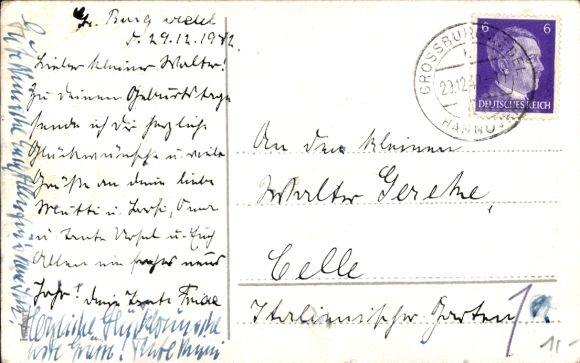 Gr. Burgwedel
d. 29.12.1942.
Lieber kleiner Walter!
Zu deinem Geburtstage
sende ich dir herzliche
Glückwünsche u. viele
Grüße an deine liebe
Mutti u. Omа
u. Tante Ursel u. Euch
Allen ein frohes neues
Jahr! Deine Tante Frieda
Herzliche Glückwünsche
Grüße!
GROSSBURGWEDEL
29.12.42
HANNOVER
6 6
DEUTSCHES REICH
An den kleinen
Walter Gereke,
Celle
Italienischer Garten